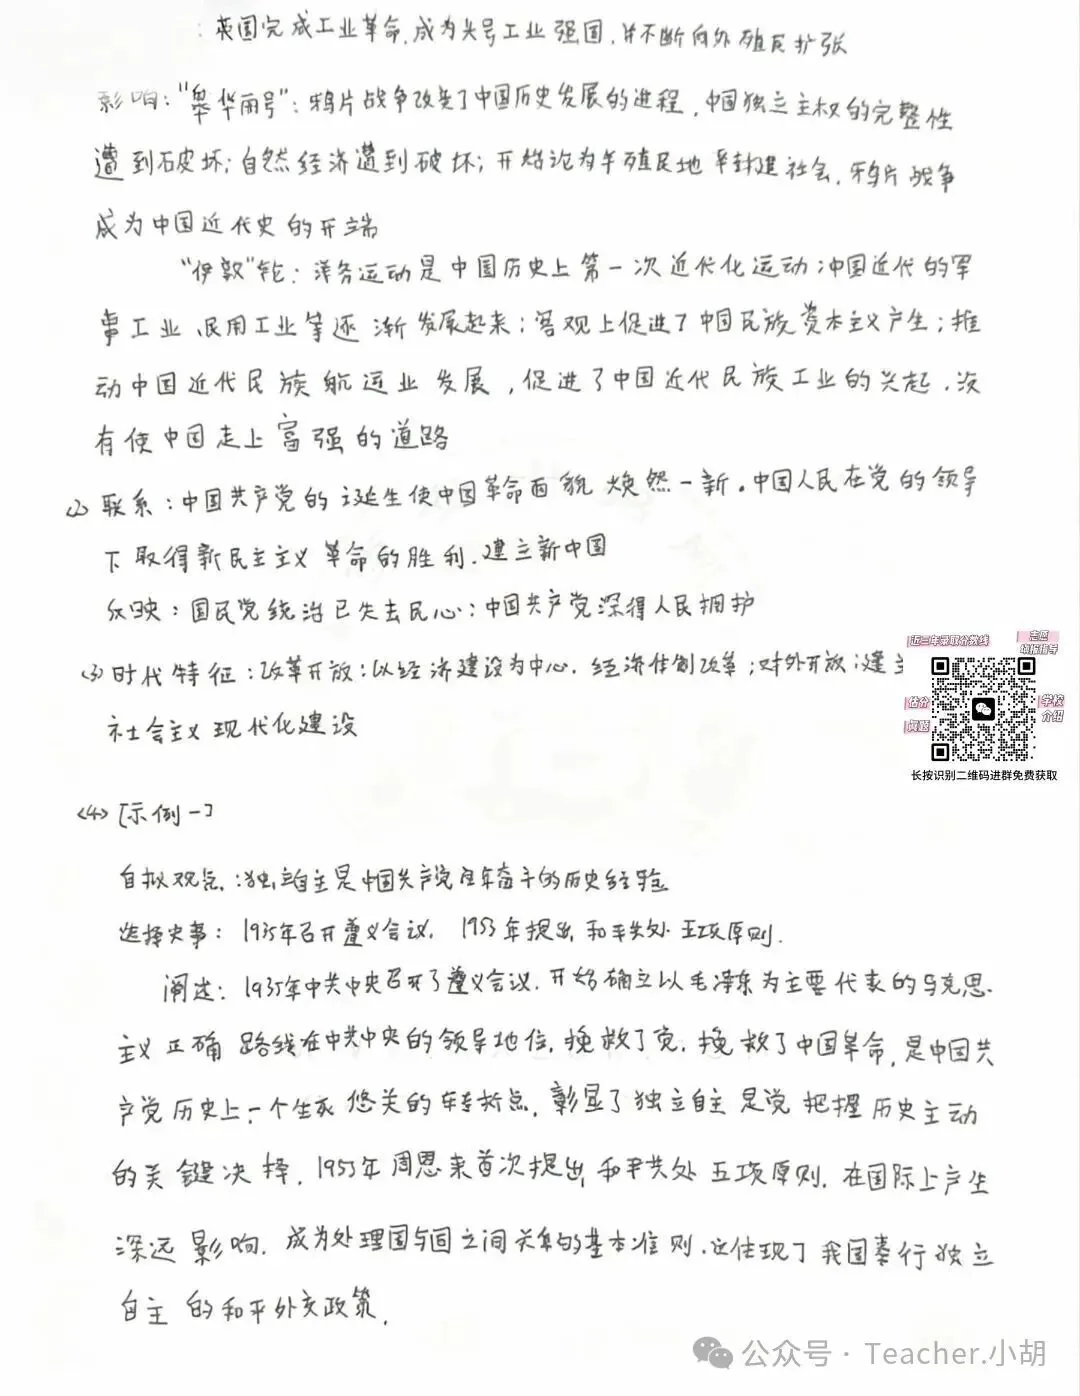 ：英国完成工业革命，成为头号工业强国，并不断向外殖民扩张
影响："皋华丽号"：鸦片战争改变了中国历史发展的进程，中国独立主权的完整性
遭到破坏；自然经济遭到破坏；开始沦为半殖民地半封建社会，鸦片战争
成为中国近代史的开端
"伊敦"轮：洋务运动是中国历史上第一次近代化运动；中国近代的军
事工业、民用工业等逐渐发展起来；客观上促进了中国民族资本主义产生；推
动中国近代民族航运业发展，促进了中国近代民族工业的兴起，没
有使中国走上富强的道路
(2) 联系：中国共产党的诞生使中国革命面貌焕然一新。中国人民在党的领导
下取得新民主主义革命的胜利，建立新中国
反映：国民党统治已失去民心；中国共产党深得人民拥护
(3) 时代特征：改革开放；以经济建设为中心，经济体制改革；对外开放；建
社会主义现代化建设
近三年录取分数线
志愿
填报指导
估分
问题
学校
介绍
长按识别二维码进群免费获取
<4> [示例一]
自拟观点：独立自主是中国共产党百年奋斗的历史经验
选择史事：1935年召开遵义会议，1953年提出和平共处五项原则.
阐述：1935年中共中央召开了遵义会议，开始确立以毛泽东为主要代表的马克思
主义正确路线在中共中央的领导地位，挽救了党，挽救了中国革命，是中国共
产党历史上一个生死攸关的转折点，彰显了独立自主是党把握历史主动
的关键决择，1953年周恩来首次提出和平共处五项原则，在国际上产生
深远影响，成为处理国与国之间关系的基本准则，这体现了我国奉行独立
自主的和平外交政策.
公众号 · Teacher.小胡